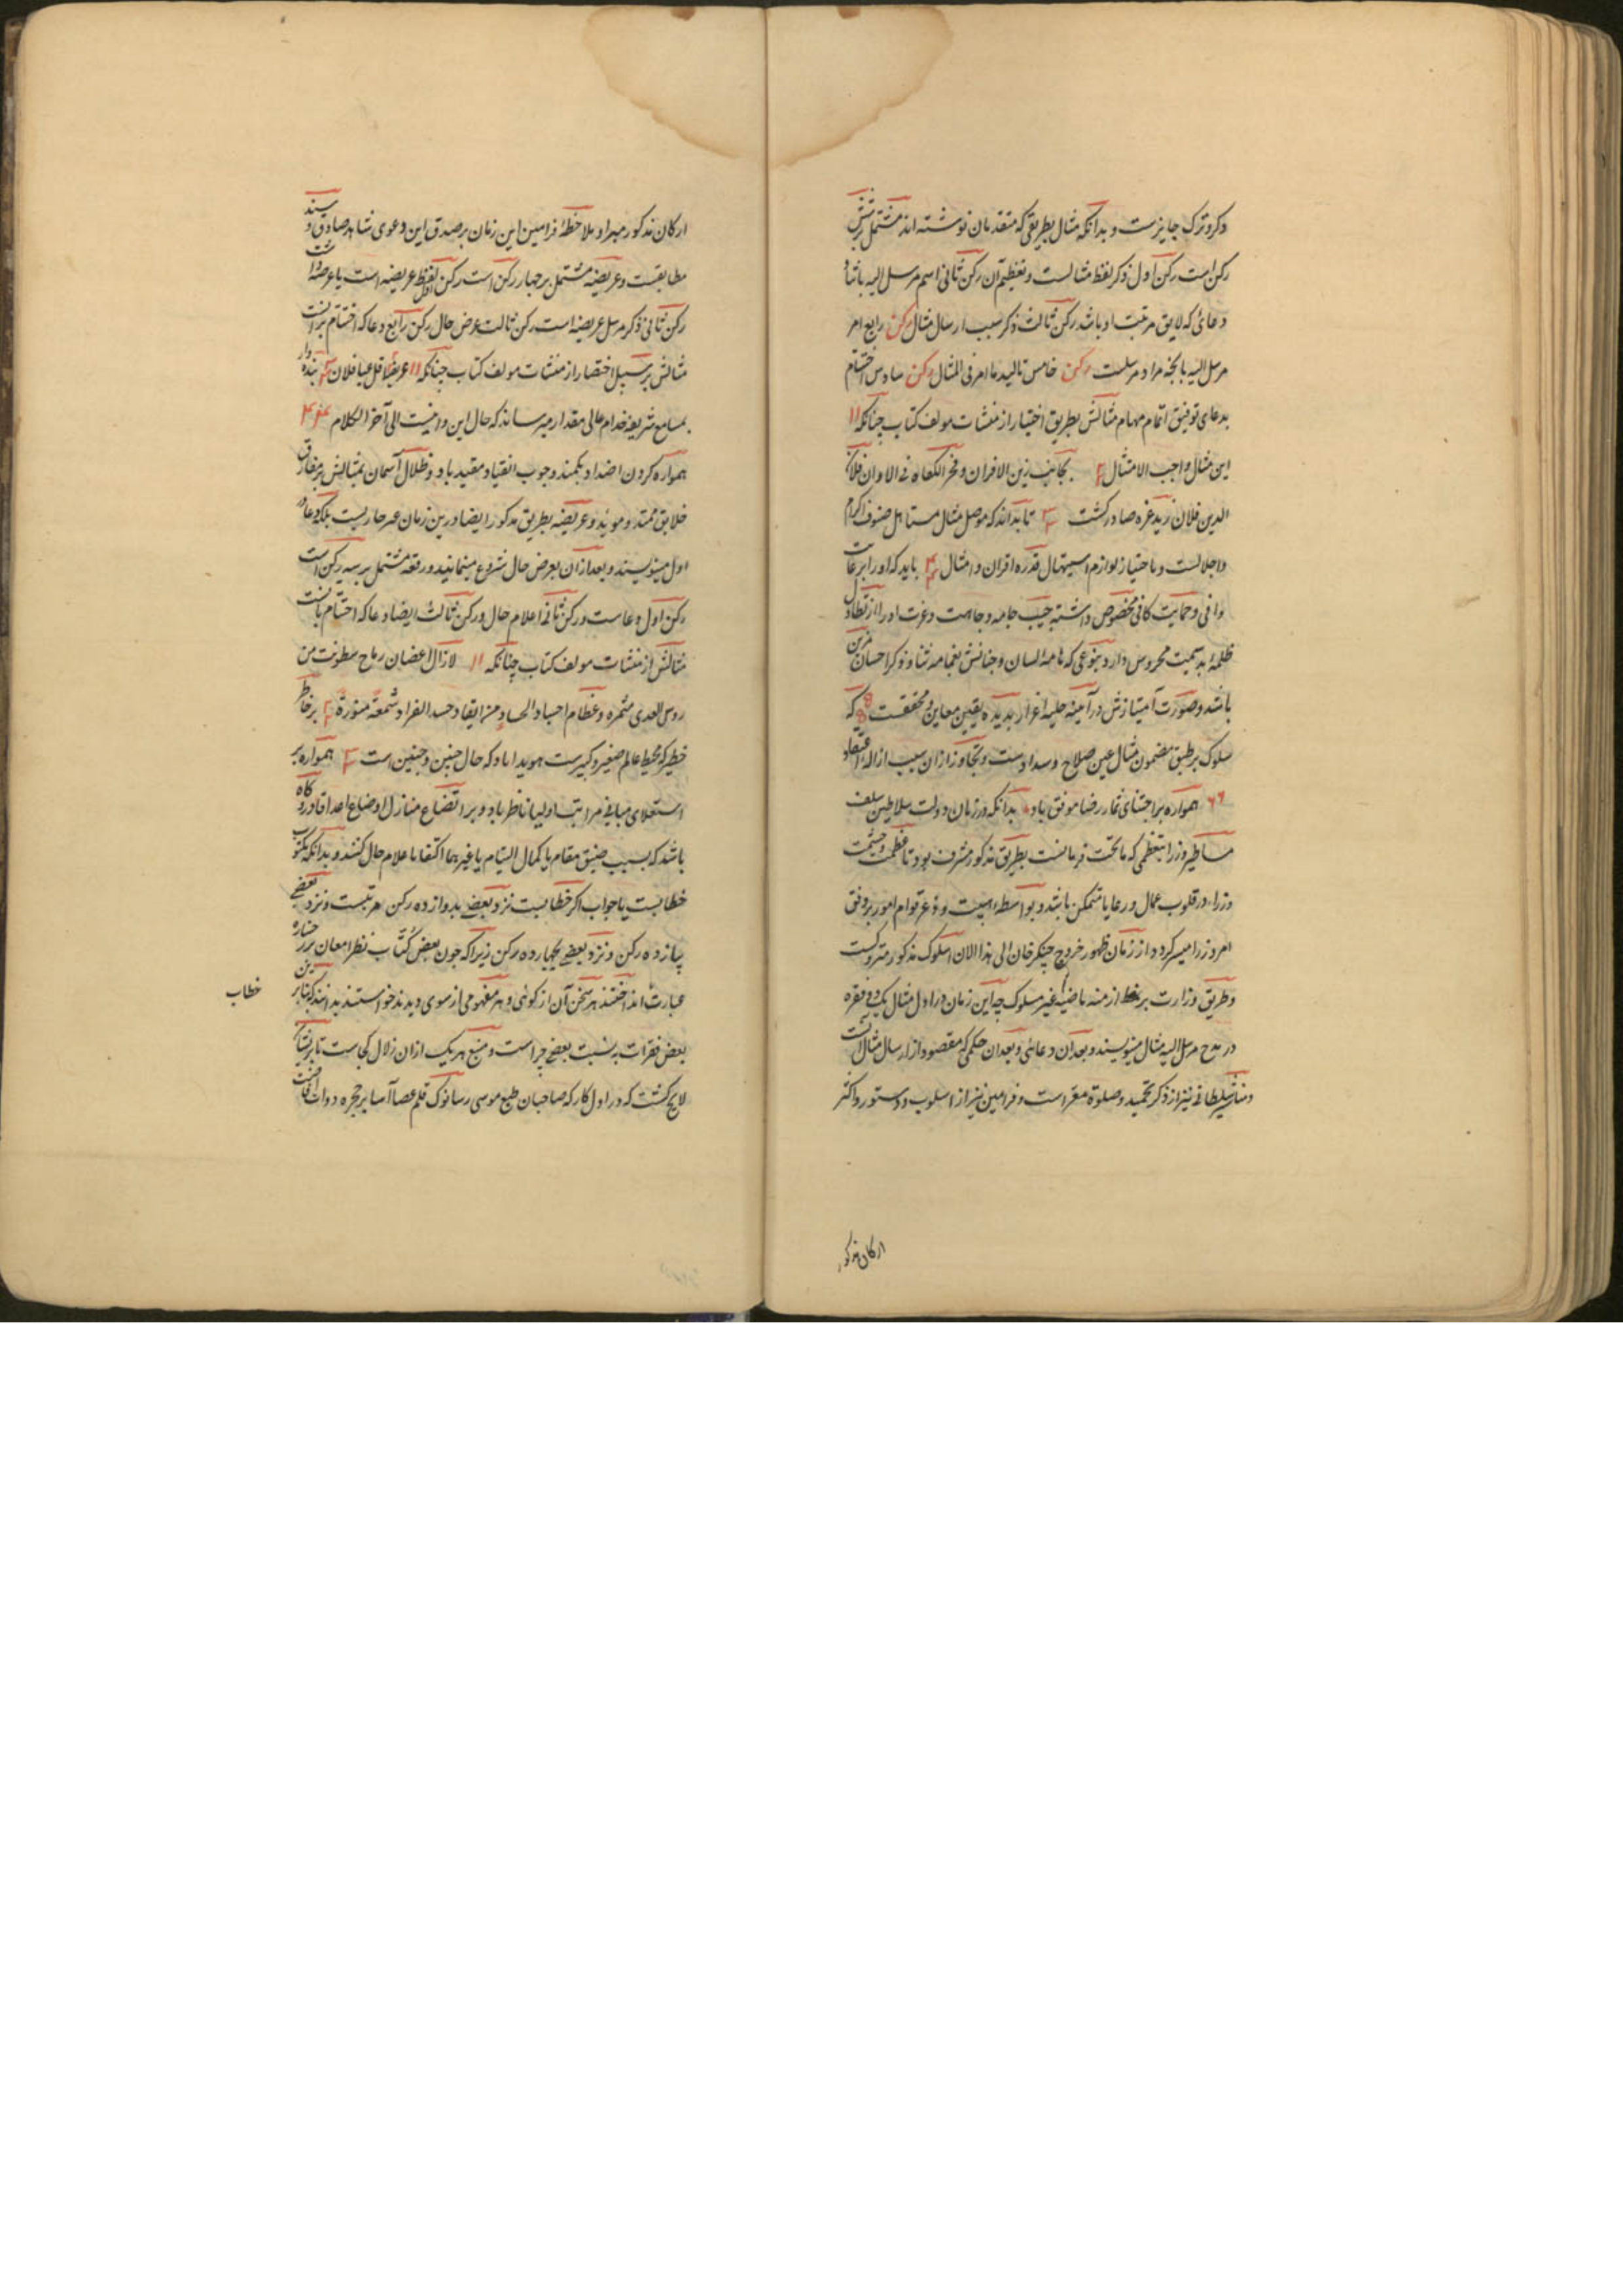 ذکر و ترک جایزست و بدانکه مثال بطریقی که متقدمان نوشته اند مشتمل برشش
رکن است رکن اول ذکر لفظ مثالست و تعظیم آن رکن ثانی اسم مرسل الیه باشد و
دعائی که لایق مرتبت او باشد رکن ثالث ذکر سبب ارسال مثال رکن رابع امر
مرسل الیه بانچه مراد مرسلست رکن خامس تاکید ما امر فی المثال رکن سادس اختتام
بدعای توفیق اتمام مهام مثالش بطریق اختیار از منشآت مولف کتاب چنانکه ۱۱
این مثال واجب الامتثال ۲ بجانب زین الاقران و فخر الکفاه فی الاوان فلان
الدین فلان زید عزه صادر کشت ۳ تا بداند که موصل مثال مستاهل صنوف اکرام
و اجلالست و باحتیاز لوازم استیهال قدره اقران و امثال ۴ باید که او را برعایت
وافی و حمایت کافی مخصوص داشته جیب جامه وجاهت و عزت او را از تطاول
ظلمه بدسمیت محروس دارد بنوعی که نامه لسان و جنانش بغمامه ثنا و ذکر احسان مزین
باشد و صورت امتیازش در آینه حلیه اعزاز بدیده یقین معاین و محققست که
سلوک بر طبق مضمون مثال عین صلاح و سدادست و تجاوز از ان سبب ازاله اعتقاد
۶۶ همواره بر اجتنای ثمار رضا موفق باد بدانکه در زمان دولت سلاطین سلف
مساطیر وزرا بتعظمی که ماتحت فرمانست بطریق مذکور مشرف بود تا عظمت و حشمت
وزراء در قلوب عمال و رعایا متمکن باشد و بواسطه اهبیت و وعر قوام امور بر وفق
امر وزرا میسر کردد و از زمان ظهور خروج چنکز خان الی هذا الان اسلوک مذکور متروکست
و طریق وزارت برنمط ازمنه ماضیه غیر مسلوک چه این زمان در اول مثال یک دو فقره
در مدح مرسل الیه مثال مینویسند و بعد ان دعائی و بعد ان حکمی که مقصود از ارسال مثال انست
و مناشیر سلطانی نیز از ذکر تحمید و صلوة معراست و فرامین نیز از اسلوب و دستور و اکثر
ارکان مذکور
ارکان مذکور مبرا و ملاحظهٔ فرامین این زمان بر صدق این دعوی شاهد صادق و بینه
مطابقست و عریضه مشتمل بر چهار رکن است رکن اول لفظ عریضه است یا عرضه داشت
رکن ثانی ذکر مرسل عریضه است رکن ثالث عرض حال رکن رابع دعا که اختتام برانست
مثالش بر سبیل اختصار از منشآت مولف کتاب چنانکه ۱۱ عریضه اقل عباد فلان ۲ بنده وار
بمسامع شریفه خدام عالی مقدار میرساند که حال این و امنیت الی آخر الکلام ۴
همواره کردن اضداد بکمند وجوب انقیاد مقید باد و ظلال آسمان مثالش بر مفارق
خلایق ممتد و موید و عریضه بطریق مذکور ایضا در ین زمان غیر جاریست بلکه دعا در
اول مینویسند و بعد از ان بعرض حال شروع مینمایند و رقعه مشتمل بر سه رکن است
رکن اول دعاست و رکن ثانی اعلام حال و رکن ثالث ایضا دعا که اختتام بانست
مثالش از منشآت مولف کتاب چنانکه ۱۱ لازال اغصان رماح سطوته من
روس العدی مثمره و عظام اجساد الحساد من ایقاد حسد الفراد شمعة منورة ۲ بر خاطر
خطیر که محیط عالم صغیر و کبیرست هویدا باد که حال چنین و چنین است ۳ همواره بر
استعلای مبانی مراتب اولیا ناظر باد و بر اتضاع منازل اوضاع اعدا قادر و گاه
باشد که بسبب ضیق مقام یا کمال التیام یا غیرهما اکتفا باعلام حال کنند و بدانکه مکتوب
خطابست یا جواب اکر خطابست نزد بعضی بدوازده رکن مرتبست و نزد بعضی
پانزده رکن و نزد بعضی بچهارده رکن زیرا که چون بعض کُتّاب نظر امعان بر رخساره
عبارت انداختند هر سخن آن از کوئی و هر مفهومی از سوی دیدند خواستند بدانند که بنابرین
خطاب
بعض فقرات به نسبت بعضی چراست و منبع هریک ازان زلال کجاست تا بریشان
لایح کشت که در اول کار که صاحبان طبع موسی رسا نوک قلم عصا آسا بر حجره دوات